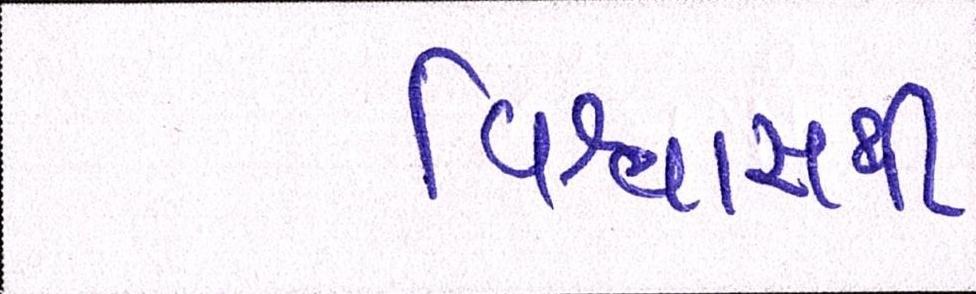 વિશ્વાસથી